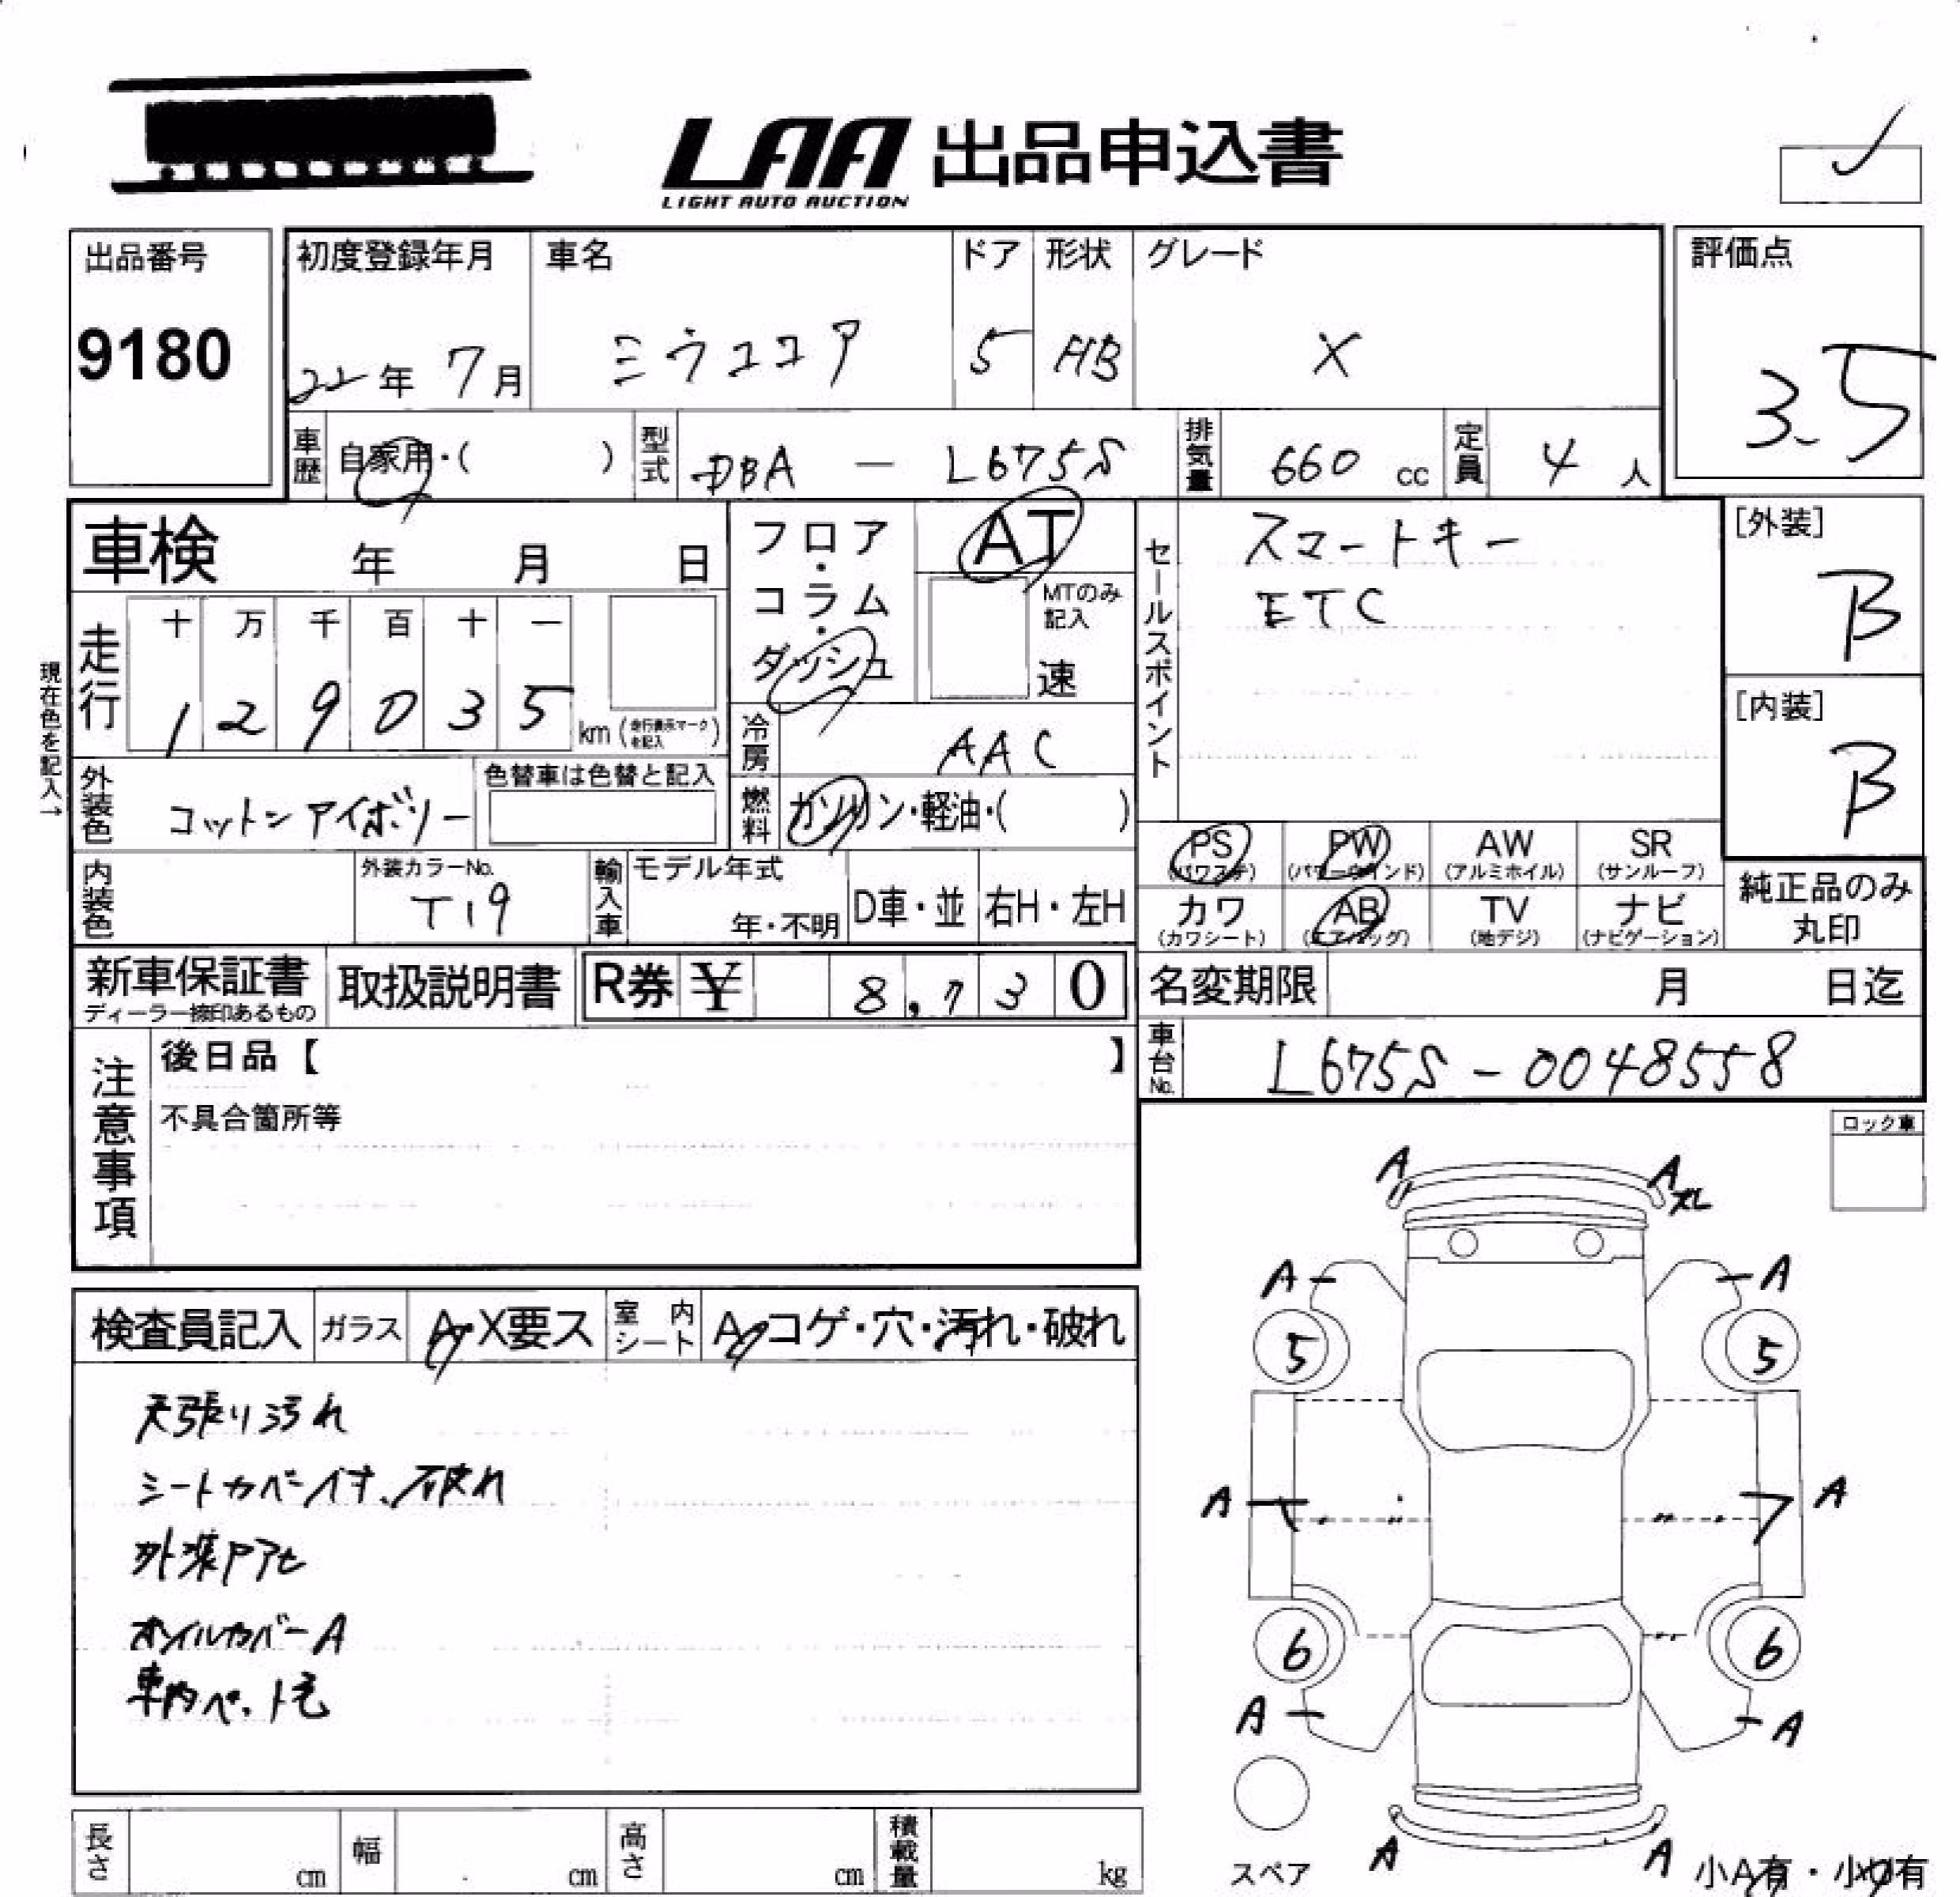 LAA 出品申込書
LIGHT AUTO AUCTION
出品番号
9180
初度登録年月
22年 7月
車名
ミラココア
ドア
5
形状
HB
グレード
X
評価点
3.5
車歴 自家用・( )
型式 DBA - L675S
排気量 660 cc
定員 4 人
車検 年 月 日
フロア・コラム・ダッシュ
AT
MTのみ記入
速
セールスポイント
スマートキー
ETC
[外装]
B
[内装]
B
現在色を記入→
走行
十 万 千 百 十 一
1 2 9 0 3 5 km (走行表示マークを記入)
冷房 AAC
外装色 コットンアイボリー
色替車は色替と記入
燃料 ガソリン・軽油・( )
PS (パワステ)
PW (パワーウインド)
AW (アルミホイル)
SR (サンルーフ)
カワ (カワシート)
AB (エアバッグ)
TV (地デジ)
ナビ (ナビゲーション)
純正品のみ丸印
内装色
外装カラーNo.
T19
輸入車
モデル年式
年・不明
D車・並
右H・左H
新車保証書
ディーラー捺印あるもの
取扱説明書
R券 ¥ 8,730
名変期限 月 日迄
車台No. L675S-0048558
注意事項
後日品【 】
不具合箇所等
ロック車
検査員記入
ガラス A・X要ス
室内シート A・コゲ・穴・汚れ・破れ
天張り汚れ
シートカバー付、破れ
オイルカバーA
車内ペット毛
A A
A A
5 5
A A
6 6
A A
A A
スペア
小A有・小U有
長さ cm
幅 cm
高さ cm
積載量 kg